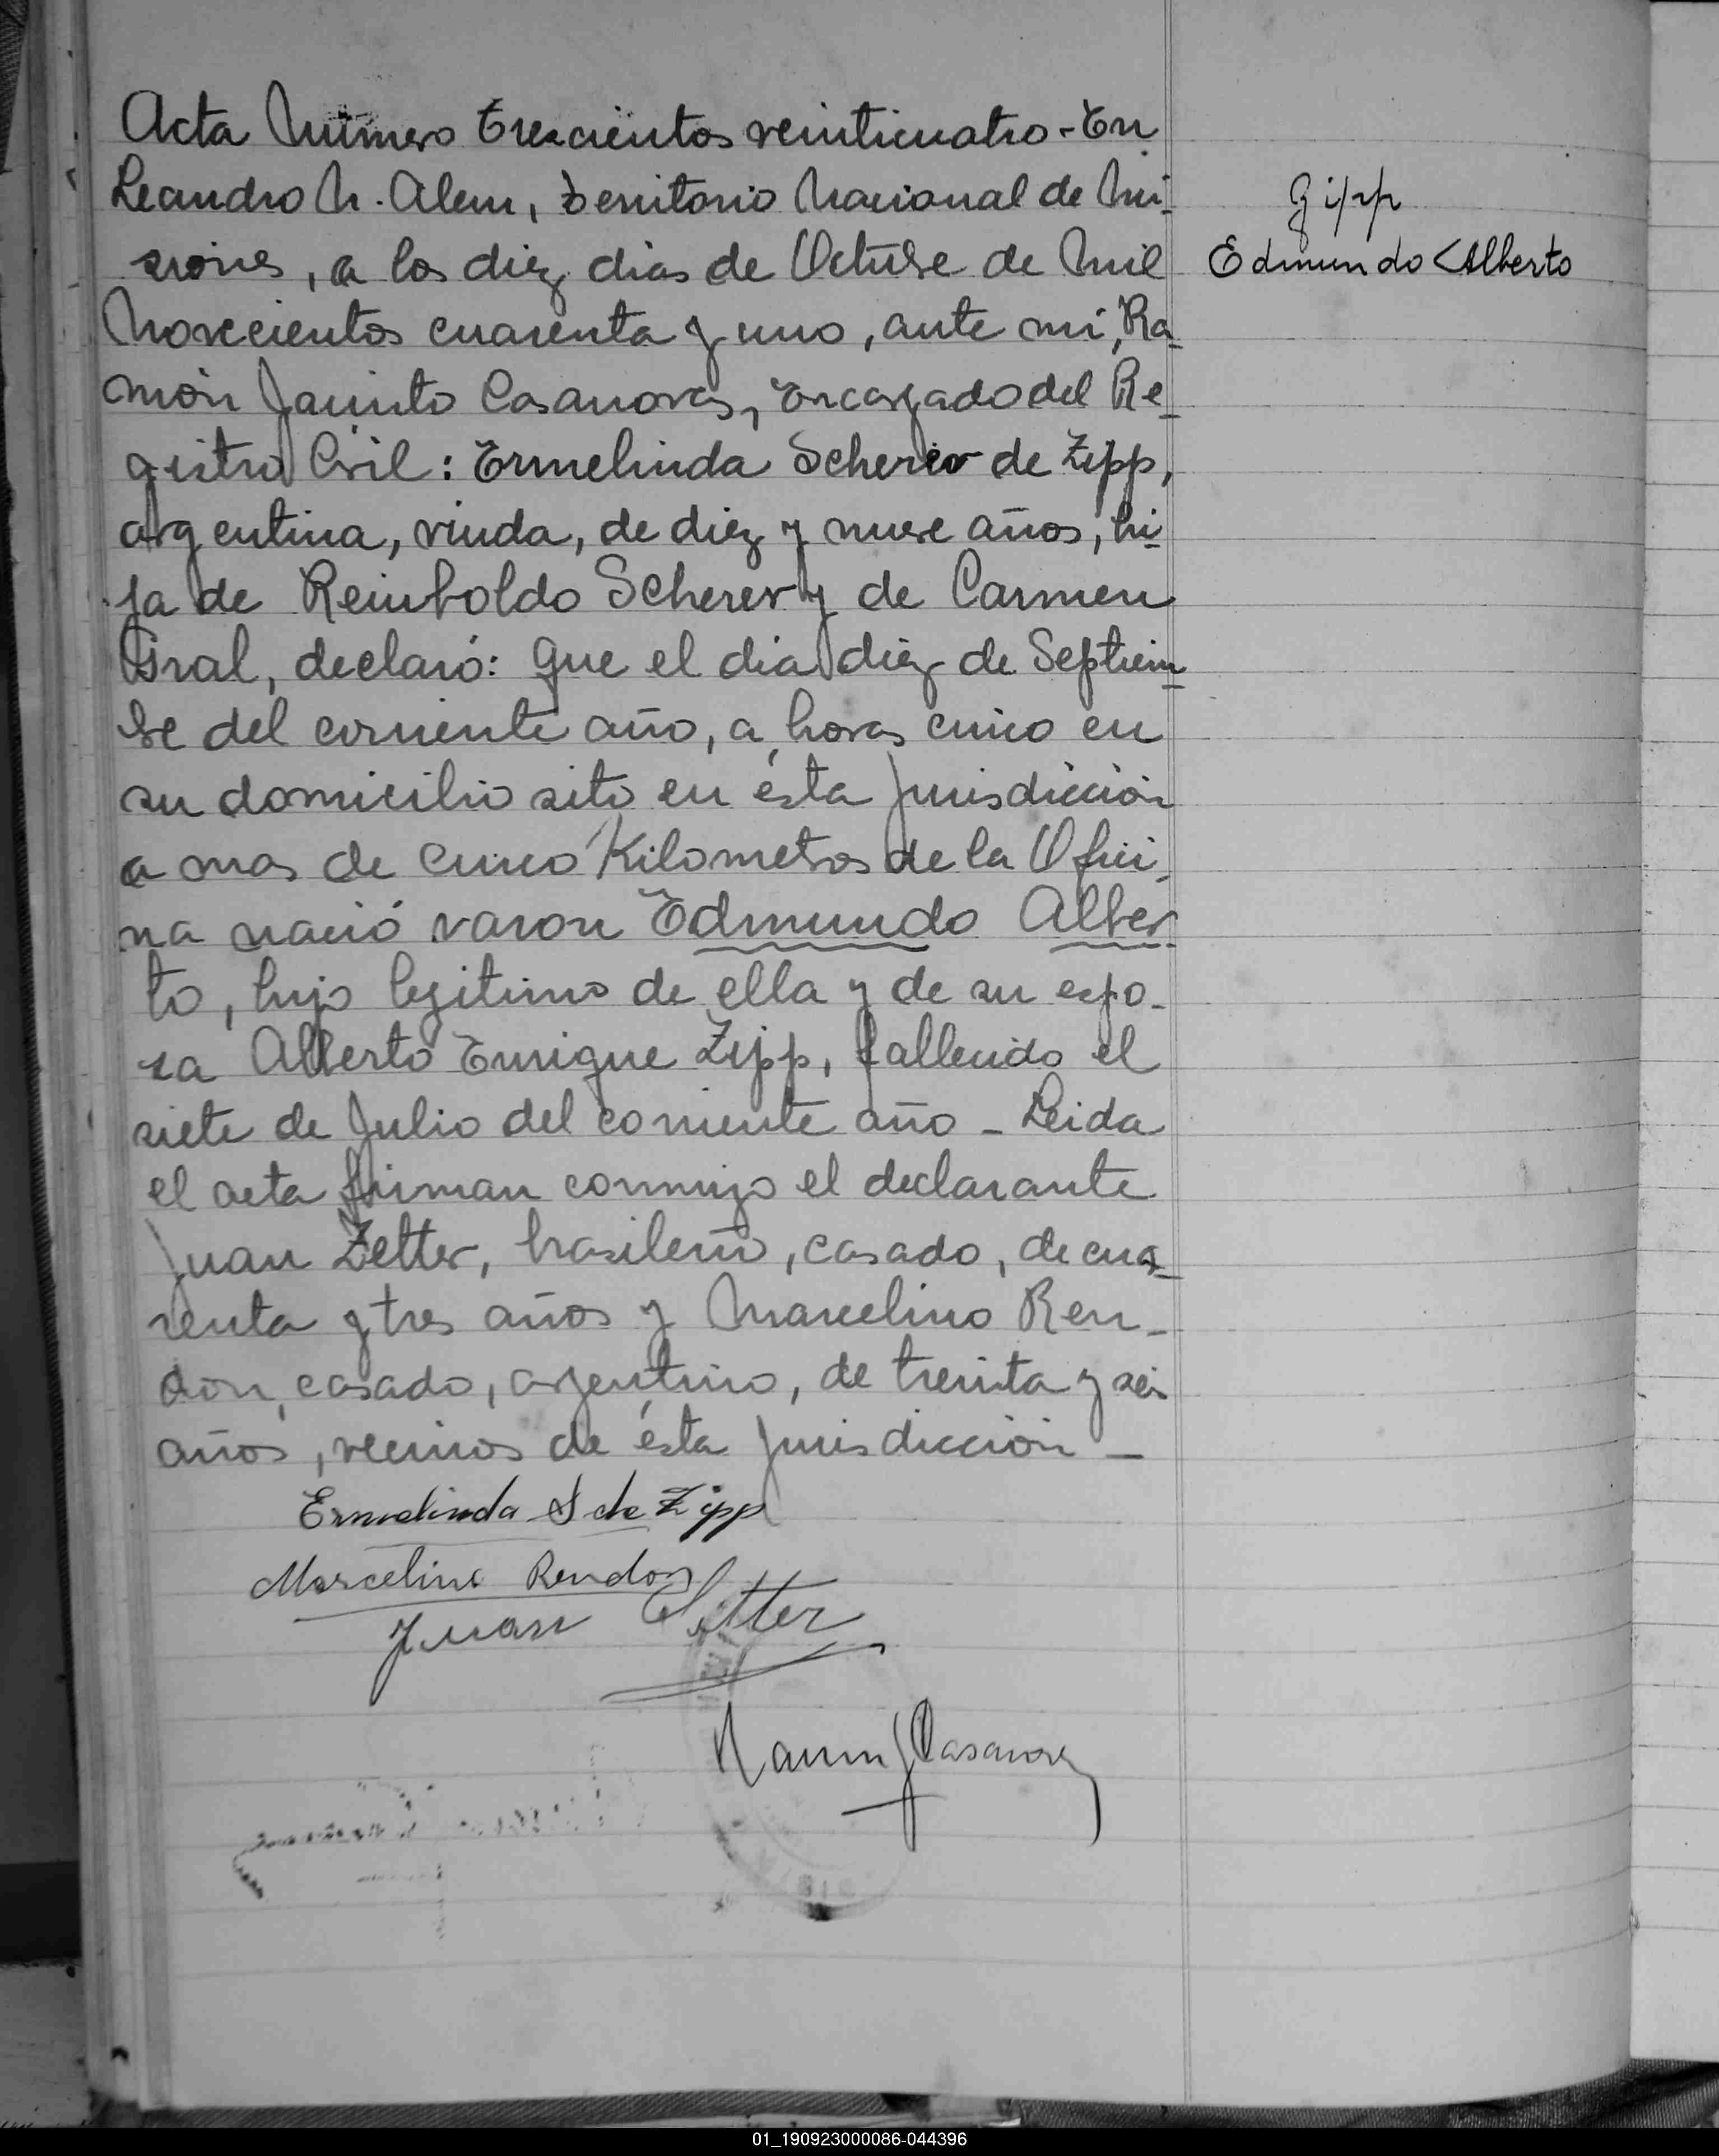 Acta Número trescientos veinticuatro - En
Leandro N. Alem, territorio Nacional de Mi-
siones, a los diez dias de Octubre de Mil
Novecientos cuarenta y uno, ante mi, Ra-
món Jacinto Casanovas, Encargado del Re-
gistro Civil: Ermelinda Scherer de Zipp,
argentina, viuda, de diez y nueve años, hi-
ja de Reinholdo Scherer y de Carmen
Gral, declaró: Que el dia diez de Septiem-
bre del corriente año, a horas cinco en
su domicilio sito en ésta Jurisdicción
a mas de cinco Kilometros de la Ofici-
na nació varon Edmundo Alber-
to, hijo legitimo de ella y de su espo-
so Alberto Enrique Zipp, fallecido el
siete de Julio del corriente año - Leida
el acta firman conmigo el declarante
Juan Zetter, brasileño, casado, de cua-
renta y tres años y Marcelino Ren-
don, casado, argentino, de treinta y seis
años, vecinos de ésta Jurisdicción -
Ermelinda S de Zipp
Marcelino Rendon
Juan
Ramon J Casanovas
Zipp
Edmundo Alberto
01_190923000086-044396